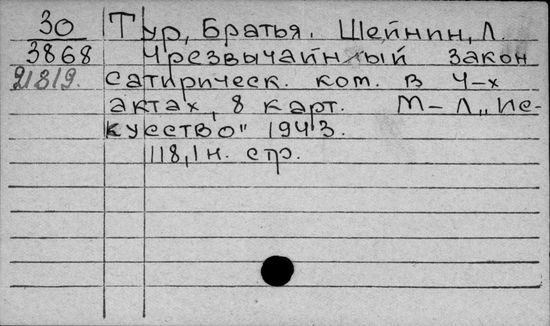 30 Тур, Братья. Шейнин, Л.
3868 Чрезвычайный закон
21819. сатирическ. ком. в 4-х
актах, 8 карт. М-Л„Ис-
кусство" 1943.
118,1 н. стр.